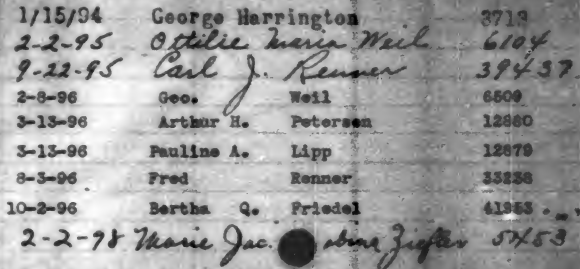 1/15/94 George Harrington 3713
2-2-95 Ottilie Maria Weil 6104
9-22-95 Carl J. Renner 39437
2-8-96 Geo. Weil 6509
3-13-96 Arthur H. Petersen 12880
3-13-96 Pauline A. Lipp 12879
8-3-96 Fred Renner 33238
10-2-96 Bertha Q. Friedel 41353
2-2-98 Marie Jac. Ziegler 5453